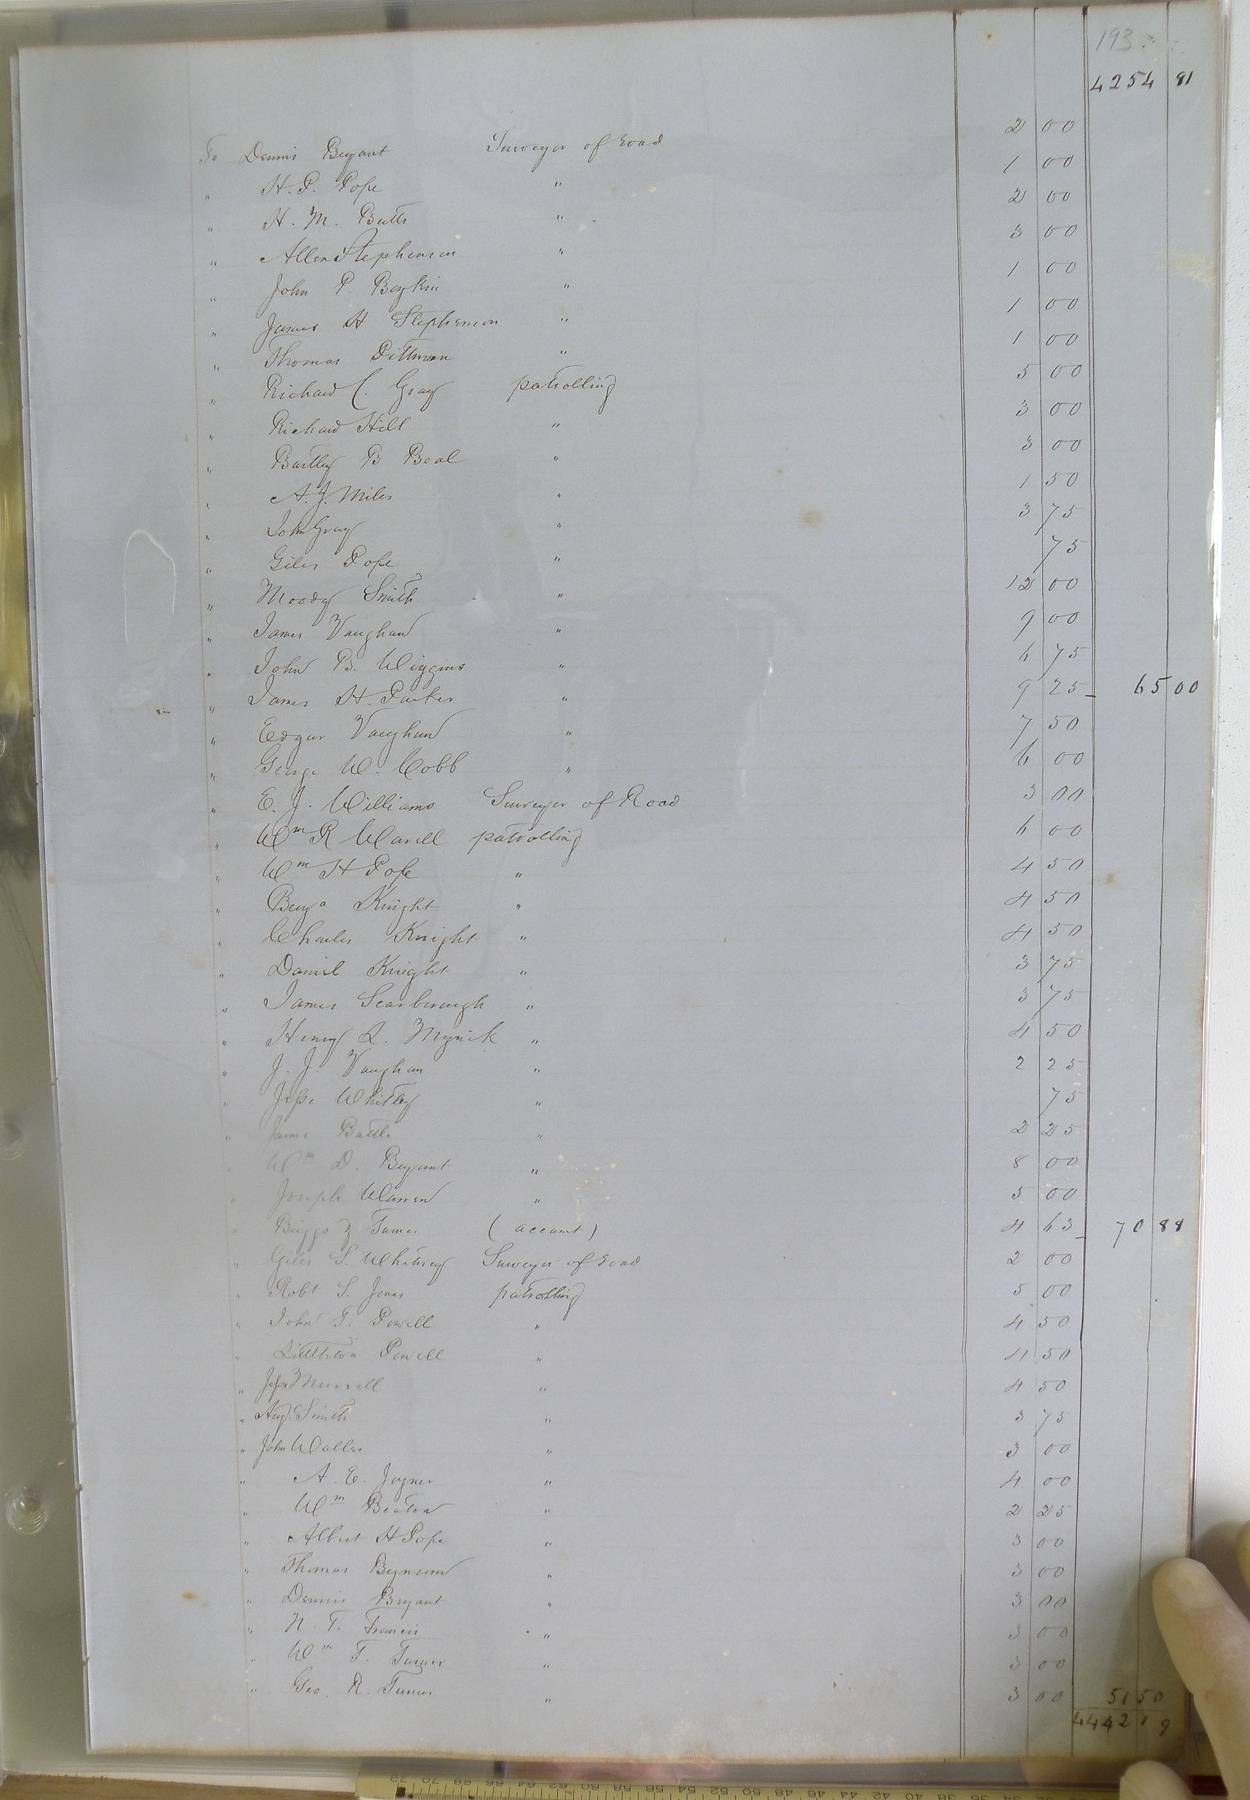 193
4254 81
To Dennis Bryant Surveyor of Road 2 00
" H. P. Pope " 1 00
" H. M. Butts " 2 00
" Allen Stephenson " 3 00
" John P. Boykin " 1 00
" James H Stephenson " 1 00
" Thomas Pittman " 1 00
" Richard C. Gray patrolling 5 00
" Richard Hill " 3 00
" Bartley B Beal " 3 00
" A. J. Miles " 1 50
" John Gray " 3 75
" Giles Pope " 75
" Moody Smith " 12 00
" James Vaughan " 9 00
" John B. Wiggins " 6 75
" James H. Parker " 9 25 65 00
" Edgar Vaughan " 7 50
" George W. Cobb " 6 00
" E. J. Williams Surveyor of Road 3 00
" Wm R Warell patrolling 6 00
" Wm H Pope " 4 50
" Benja Knight " 4 50
" Charles Knight " 4 50
" Daniel Knight " 3 75
" James Scarborough " 3 75
" Henry L. Myrick " 4 50
" J. J. Vaughan " 2 25
" Jesse Whitley " 75
" James Battle " 2 25
" Wm D. Bryant " 8 00
" Joseph Warren " 5 00
" Briggs & Turner (account) 4 63 70 88
" Giles S. Whitney Surveyor of Road 2 00
" Robt S. Jones patrolling 5 00
" John T. Powell " 4 50
" Littleton Powell " 4 50
" Murrell " 4 50
" Smith " 3 75
" John Waller " 3 00
" A. E. Joyner " 4 00
" Wm Beaton " 2 25
" Albert H Pope " 3 00
" Thomas Bynum " 3 00
" Dennis Bryant " 3 00
" N. T. Francis " 3 00
" Wm T. Turner " 3 00
" Geo. R. Turner " 3 00 51 50
4442 19